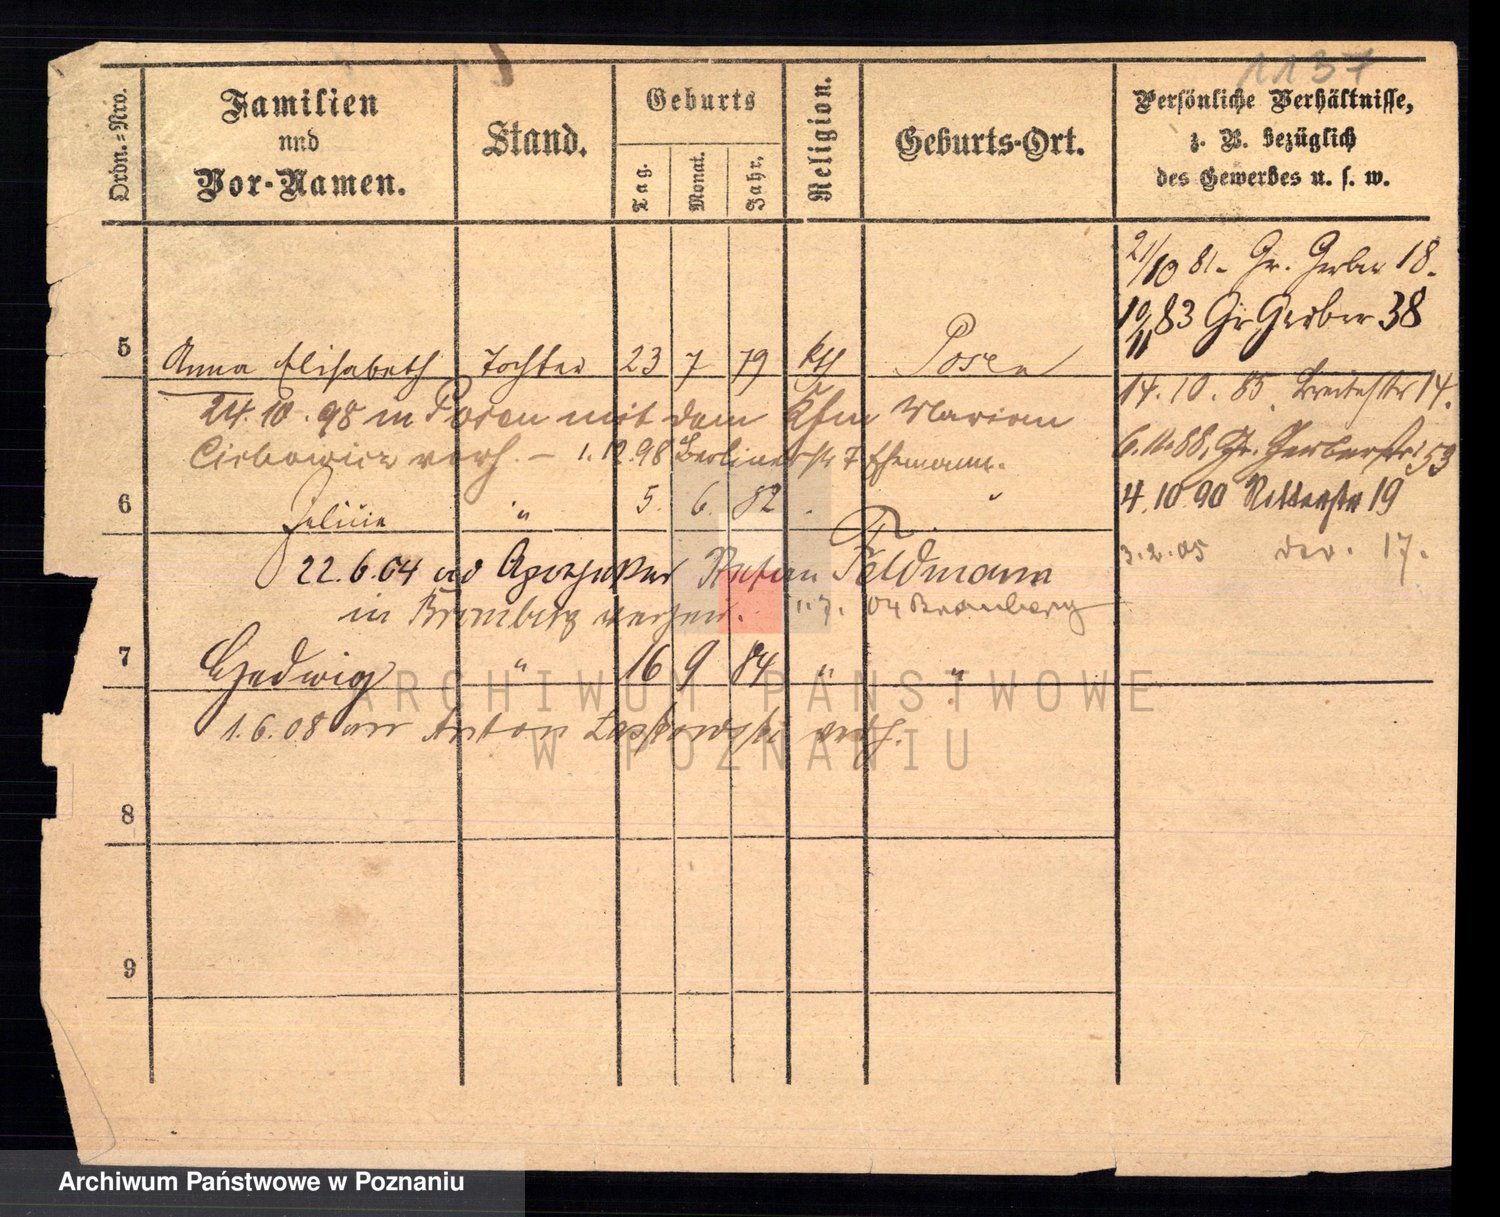 1137
Ordn.-Nro.
Familien
und
Vor-Namen.
Stand.
Geburts
Tag.
Monat.
Jahr.
Religion.
Geburts-Ort.
Persönliche Verhältnisse,
z. B. bezüglich
des Gewerbes u. s. w.
21/10 81. Gr. Gerber 18.
10/11 83 Gr Gerber 38
5 Anna Elisabeth Tochter 23 7 79 kth Posen
14. 10. 85. Breitestr 14.
24.10.98 in Posen mit dem Kfm Marian
Cichowicz verh. – 1.12.98 Berlinerstr 7 Ehemann.
6. 10 88, Gr. Gerberstr 53
6 Felicie " 5. 6. 82 . "
4. 10. 90 Ritterstr 19
3.2.05 17.
22.6.04 Apotheker Stefan Feldmann
in Bromberg 1.7. 04 Bromberg
7 Hedwig " 16 9 84 " "
1.6.08 an Anton verh.
8
9
ARCHIWUM PAŃSTWOWE
W POZNANIU
Archiwum Państwowe w Poznaniu